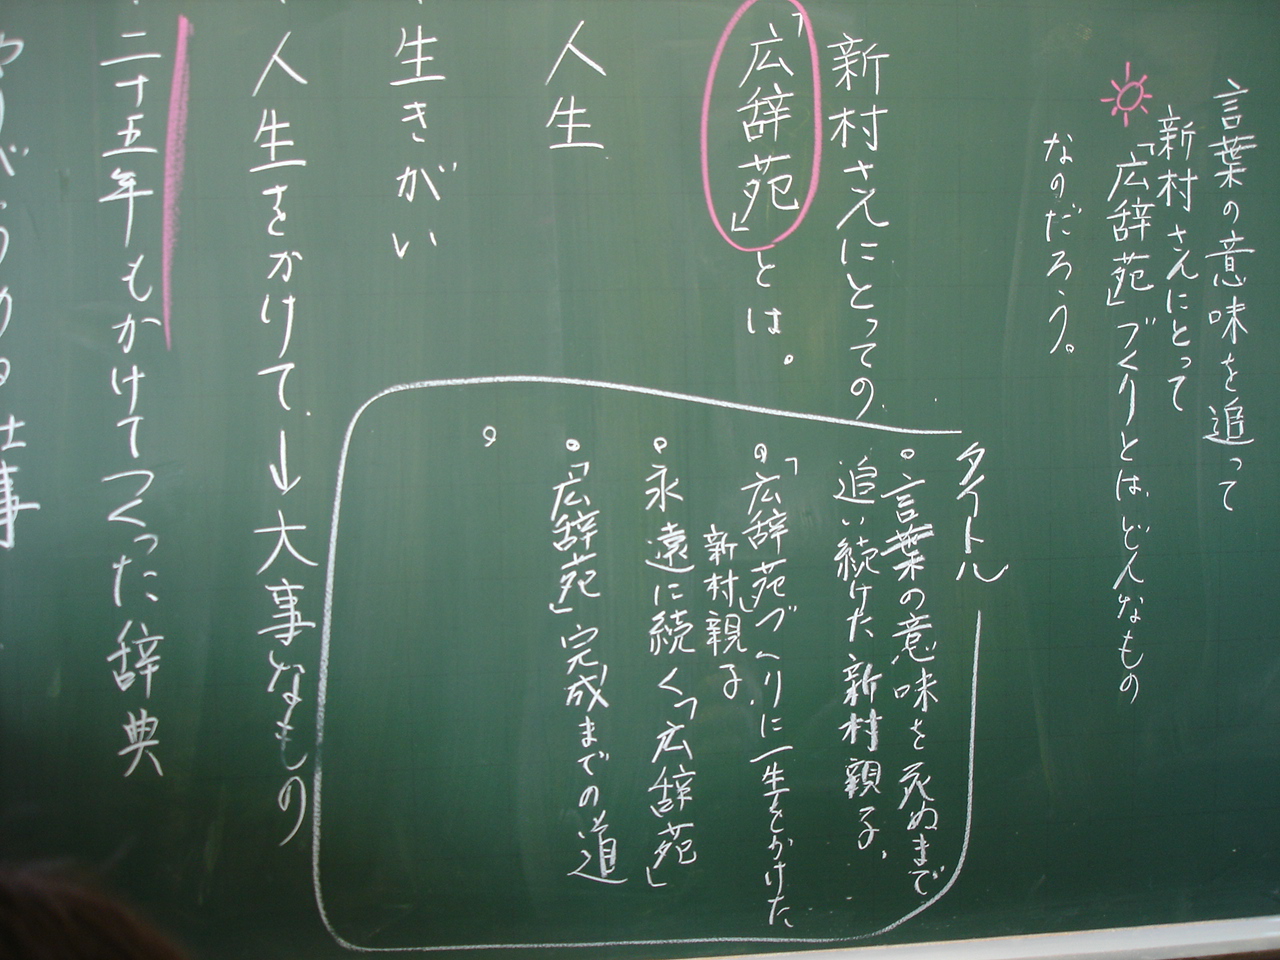 言葉の意味を追って
新村さんにとって
「広辞苑」づくりとは、どんなもの
なのだろう。
新村さんにとっての
「広辞苑」とは。
人生
生きがい
人生をかけて、→大事なもの
二十五年もかけてつくった辞典
タイトル
。言葉の意味を死ぬまで
追い続けた新村親子。
。「広辞苑」づくりに一生をかけた
新村親子
。永遠に続く「広辞苑」
。「広辞苑」完成までの道
。
仕事